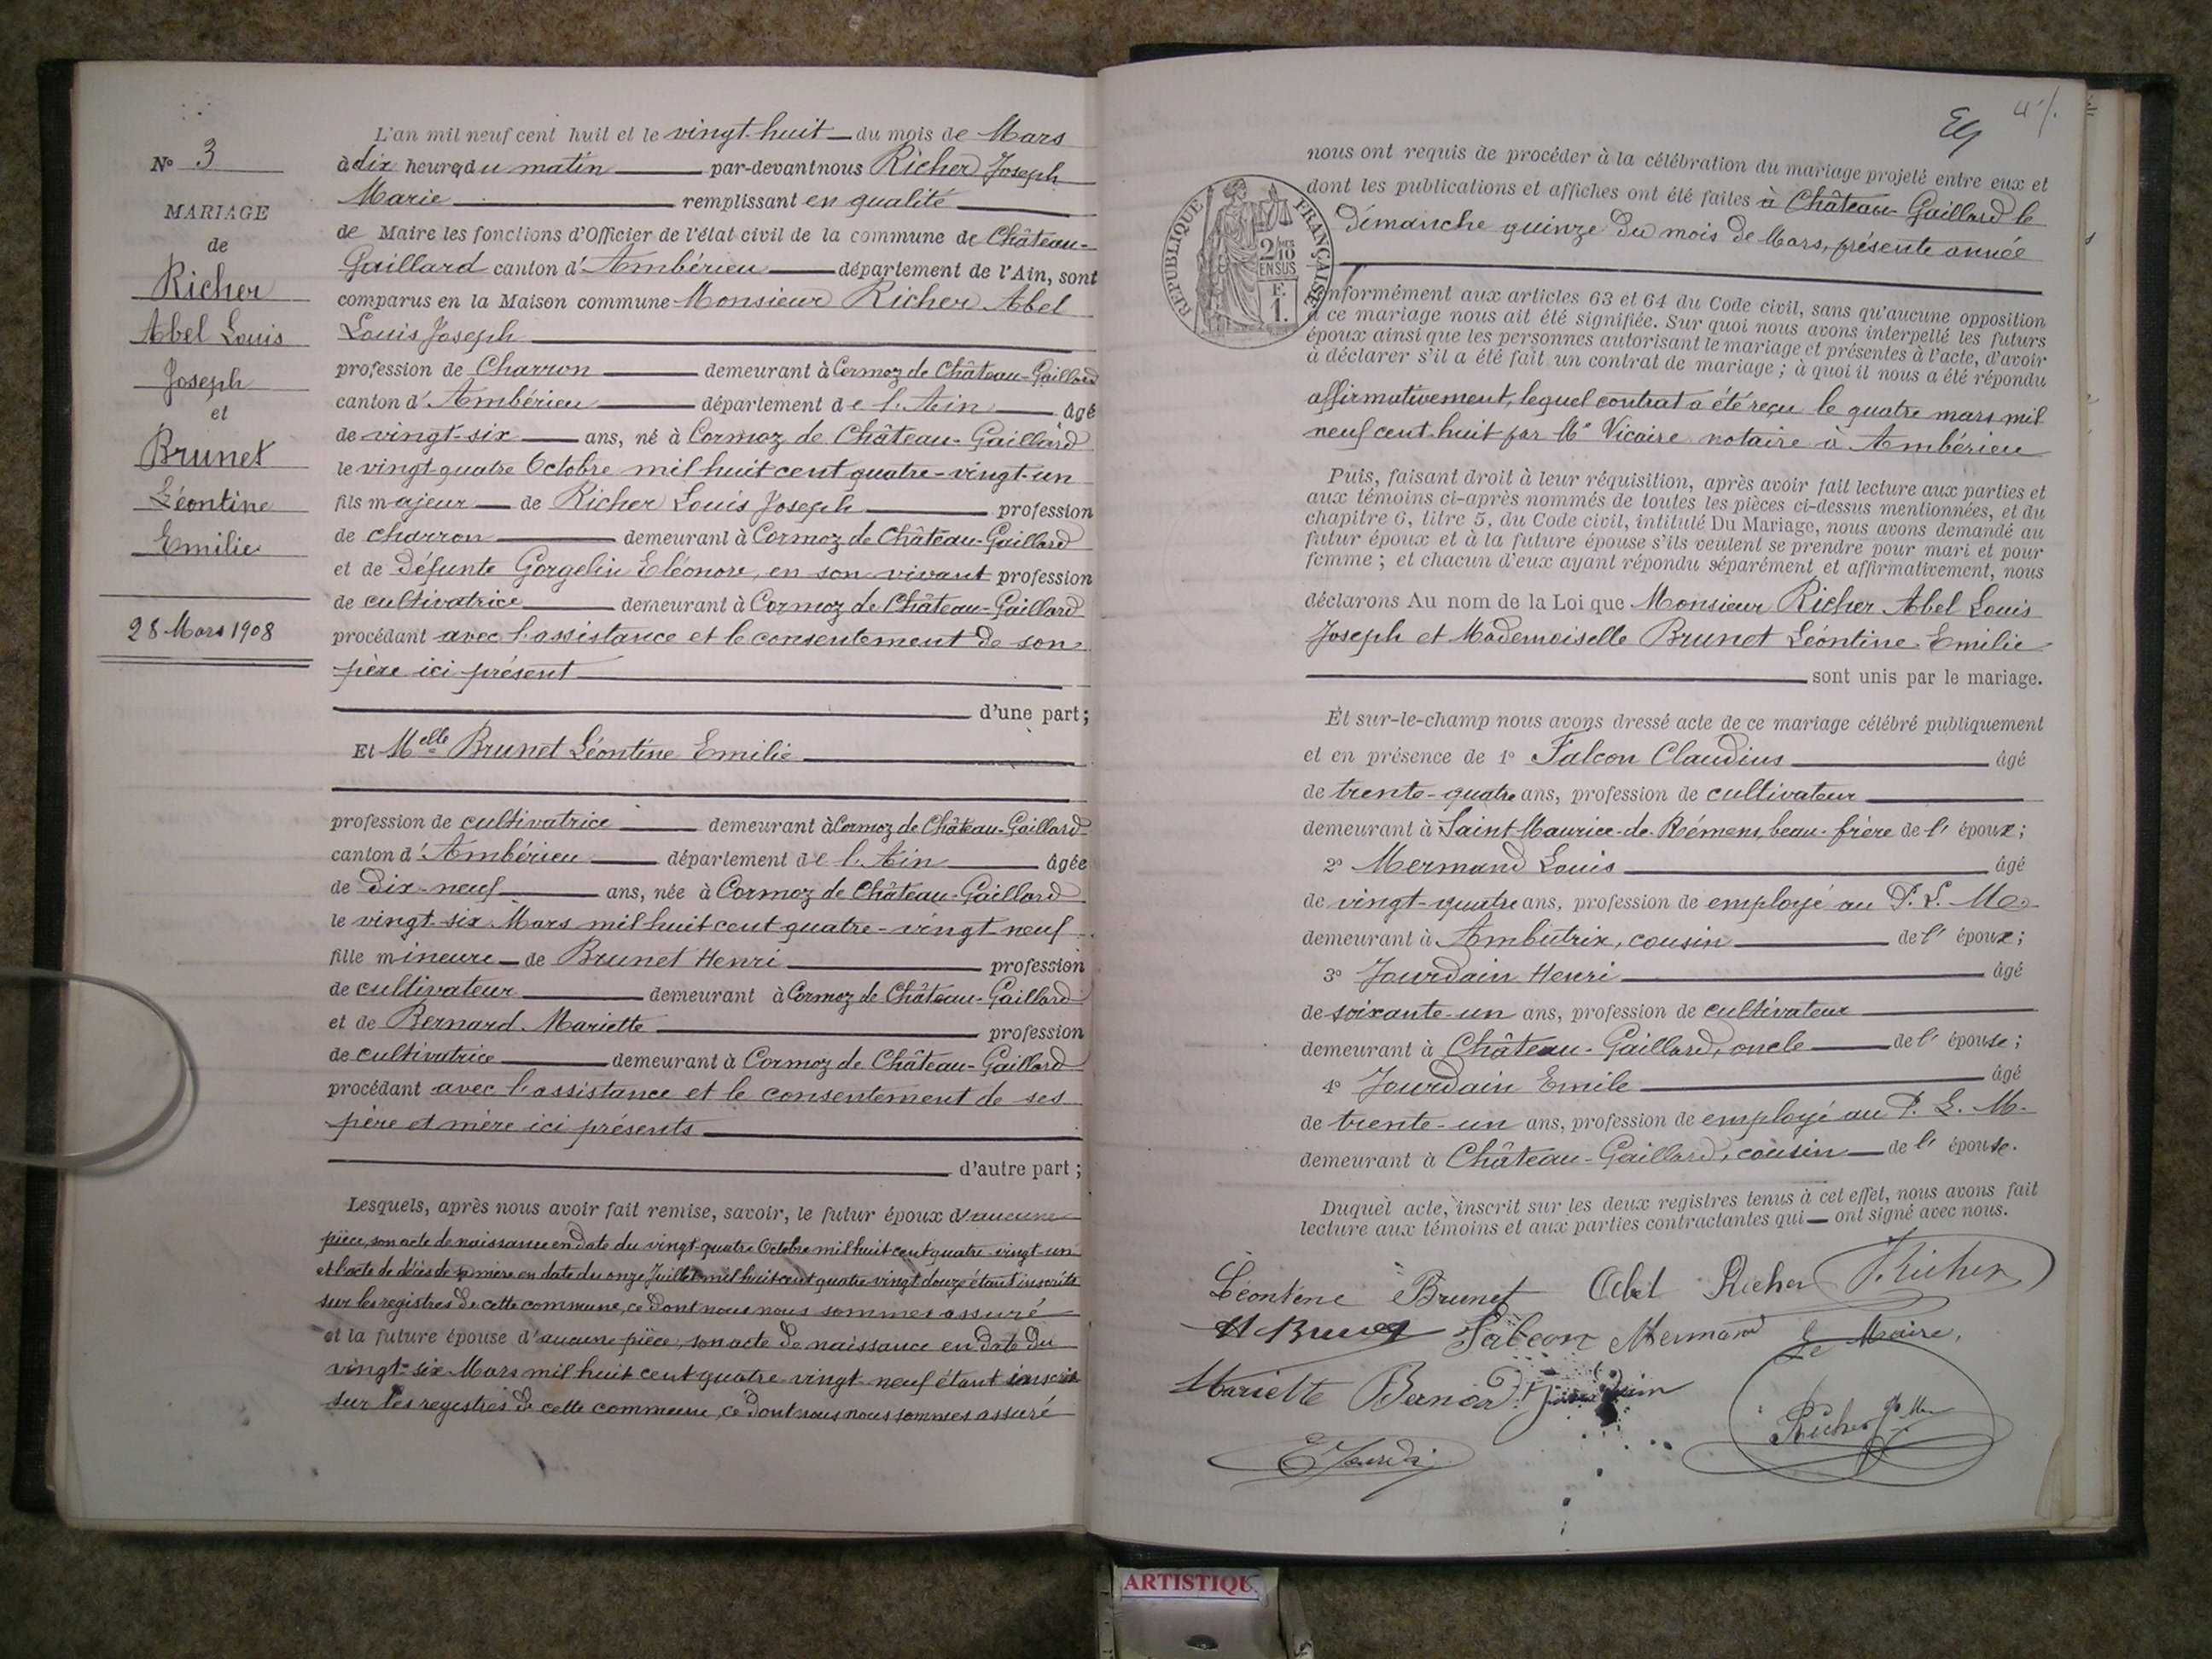 N° 3
MARIAGE
de
Richer
Abel Louis
Joseph
et
Brunet
Léontine
Emilie
28 Mars 1908
L'an mil neuf cent huit et le vingt-huit du mois de Mars
à dix heures du matin par-devant nous Richer Joseph
Marie remplissant en qualité
de Maire les fonctions d'Officier de l'état civil de la commune de Château-
Gaillard canton d'Ambérieu département de l'Ain, sont
comparus en la Maison commune Monsieur Richer Abel
Louis Joseph
profession de Charron demeurant à Cormoz de Château-Gaillard
canton d'Ambérieu département de l'Ain âgé
de vingt-six ans, né à Cormoz de Château-Gaillard
le vingt-quatre Octobre mil huit cent quatre-vingt-un
fils majeur de Richer Louis Joseph profession
de charron demeurant à Cormoz de Château-Gaillard
et de défunte Gorgelin Eléonore, en son vivant profession
de cultivatrice demeurant à Cormoz de Château-Gaillard
procédant avec l'assistance et le consentement de son
père ici présent
d'une part;
Et Melle Brunet Léontine Emilie
profession de cultivatrice demeurant à Cormoz de Château-Gaillard
canton d'Ambérieu département de l'Ain âgée
de dix-neuf ans, née à Cormoz de Château-Gaillard
le vingt-six Mars mil huit cent quatre-vingt-neuf
fille mineure de Brunet Henri profession
de cultivateur demeurant à Cormoz de Château-Gaillard
et de Bernard Mariette profession
de cultivatrice demeurant à Cormoz de Château-Gaillard
procédant avec l'assistance et le consentement de ses
père et mère ici présents
d'autre part;
Lesquels, après nous avoir fait remise, savoir, le futur époux d'aucune
pièce, son acte de naissance en date du vingt-quatre Octobre mil huit cent quatre-vingt-un
et l'acte de décès de sa mère en date du onze Juillet mil huit cent quatre-vingt douze étant inscrits
sur les registres de cette commune, ce dont nous nous sommes assuré
et la future épouse d'aucune pièce, son acte de naissance en date du
vingt-six Mars mil huit cent quatre-vingt-neuf étant inscrit
sur les registres de cette commune, ce dont nous nous sommes assuré
nous ont requis de procéder à la célébration du mariage projeté entre eux et
dont les publications et affiches ont été faites à Château-Gaillard le
dimanche quinze du mois de Mars, présente année
RÉPUBLIQUE FRANÇAISE
2/10
EN SUS
F.
1.
conformément aux articles 63 et 64 du Code civil, sans qu'aucune opposition
à ce mariage nous ait été signifiée. Sur quoi nous avons interpellé les futurs
époux ainsi que les personnes autorisant le mariage et présentes à l'acte, d'avoir
à déclarer s'il a été fait un contrat de mariage; à quoi il nous a été répondu
affirmativement, lequel contrat a été reçu le quatre mars mil
neuf cent huit par Me Vicaire notaire à Ambérieu
Puis, faisant droit à leur réquisition, après avoir fait lecture aux parties et
aux témoins ci-après nommés de toutes les pièces ci-dessus mentionnées, et du
chapitre 6, titre 5, du Code civil, intitulé Du Mariage, nous avons demandé au
futur époux et à la future épouse s'ils veulent se prendre pour mari et pour
femme; et chacun d'eux ayant répondu séparément et affirmativement, nous
déclarons Au nom de la Loi que Monsieur Richer Abel Louis
Joseph et Mademoiselle Brunet Léontine Emilie
sont unis par le mariage.
Et sur-le-champ nous avons dressé acte de ce mariage célébré publiquement
et en présence de 1° Falcon Claudius âgé
de trente-quatre ans, profession de cultivateur
demeurant à Saint-Maurice-de-Rémens, beau-frère de l' époux;
2° Mermand Louis âgé
de vingt-quatre ans, profession de employé au P. L. M.
demeurant à Ambutrix, cousin de l' époux;
3° Jourdain Henri âgé
de soixante-un ans, profession de cultivateur
demeurant à Château-Gaillard, oncle de l' épouse;
4° Jourdain Emile âgé
de trente-un ans, profession de employé au P. L. M.
demeurant à Château-Gaillard, cousin de l' épouse.
Duquel acte, inscrit sur les deux registres tenus à cet effet, nous avons fait
lecture aux témoins et aux parties contractantes qui ont signé avec nous.
Léontine Brunet Abel Richer Richer
H Brunet Falcon Mermand Le Maire,
Mariette Bernard Jourdain
Richer
E Jourdi
ARTISTIQU